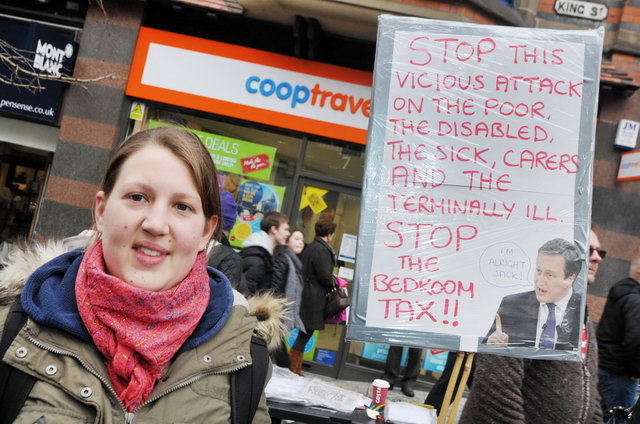 KING ST
MONT
BLANC
pensense.co.uk
cooptrave
DEALS
STOP THIS
VICIOUS ATTACK
ON THE POOR,
THE DISABLED,
THE SICK, CARERS
AND THE
TERMINALLY ILL.
STOP
THE
BEDROOM
TAX!!
I'M
ALRIGHT
JACK!
JM